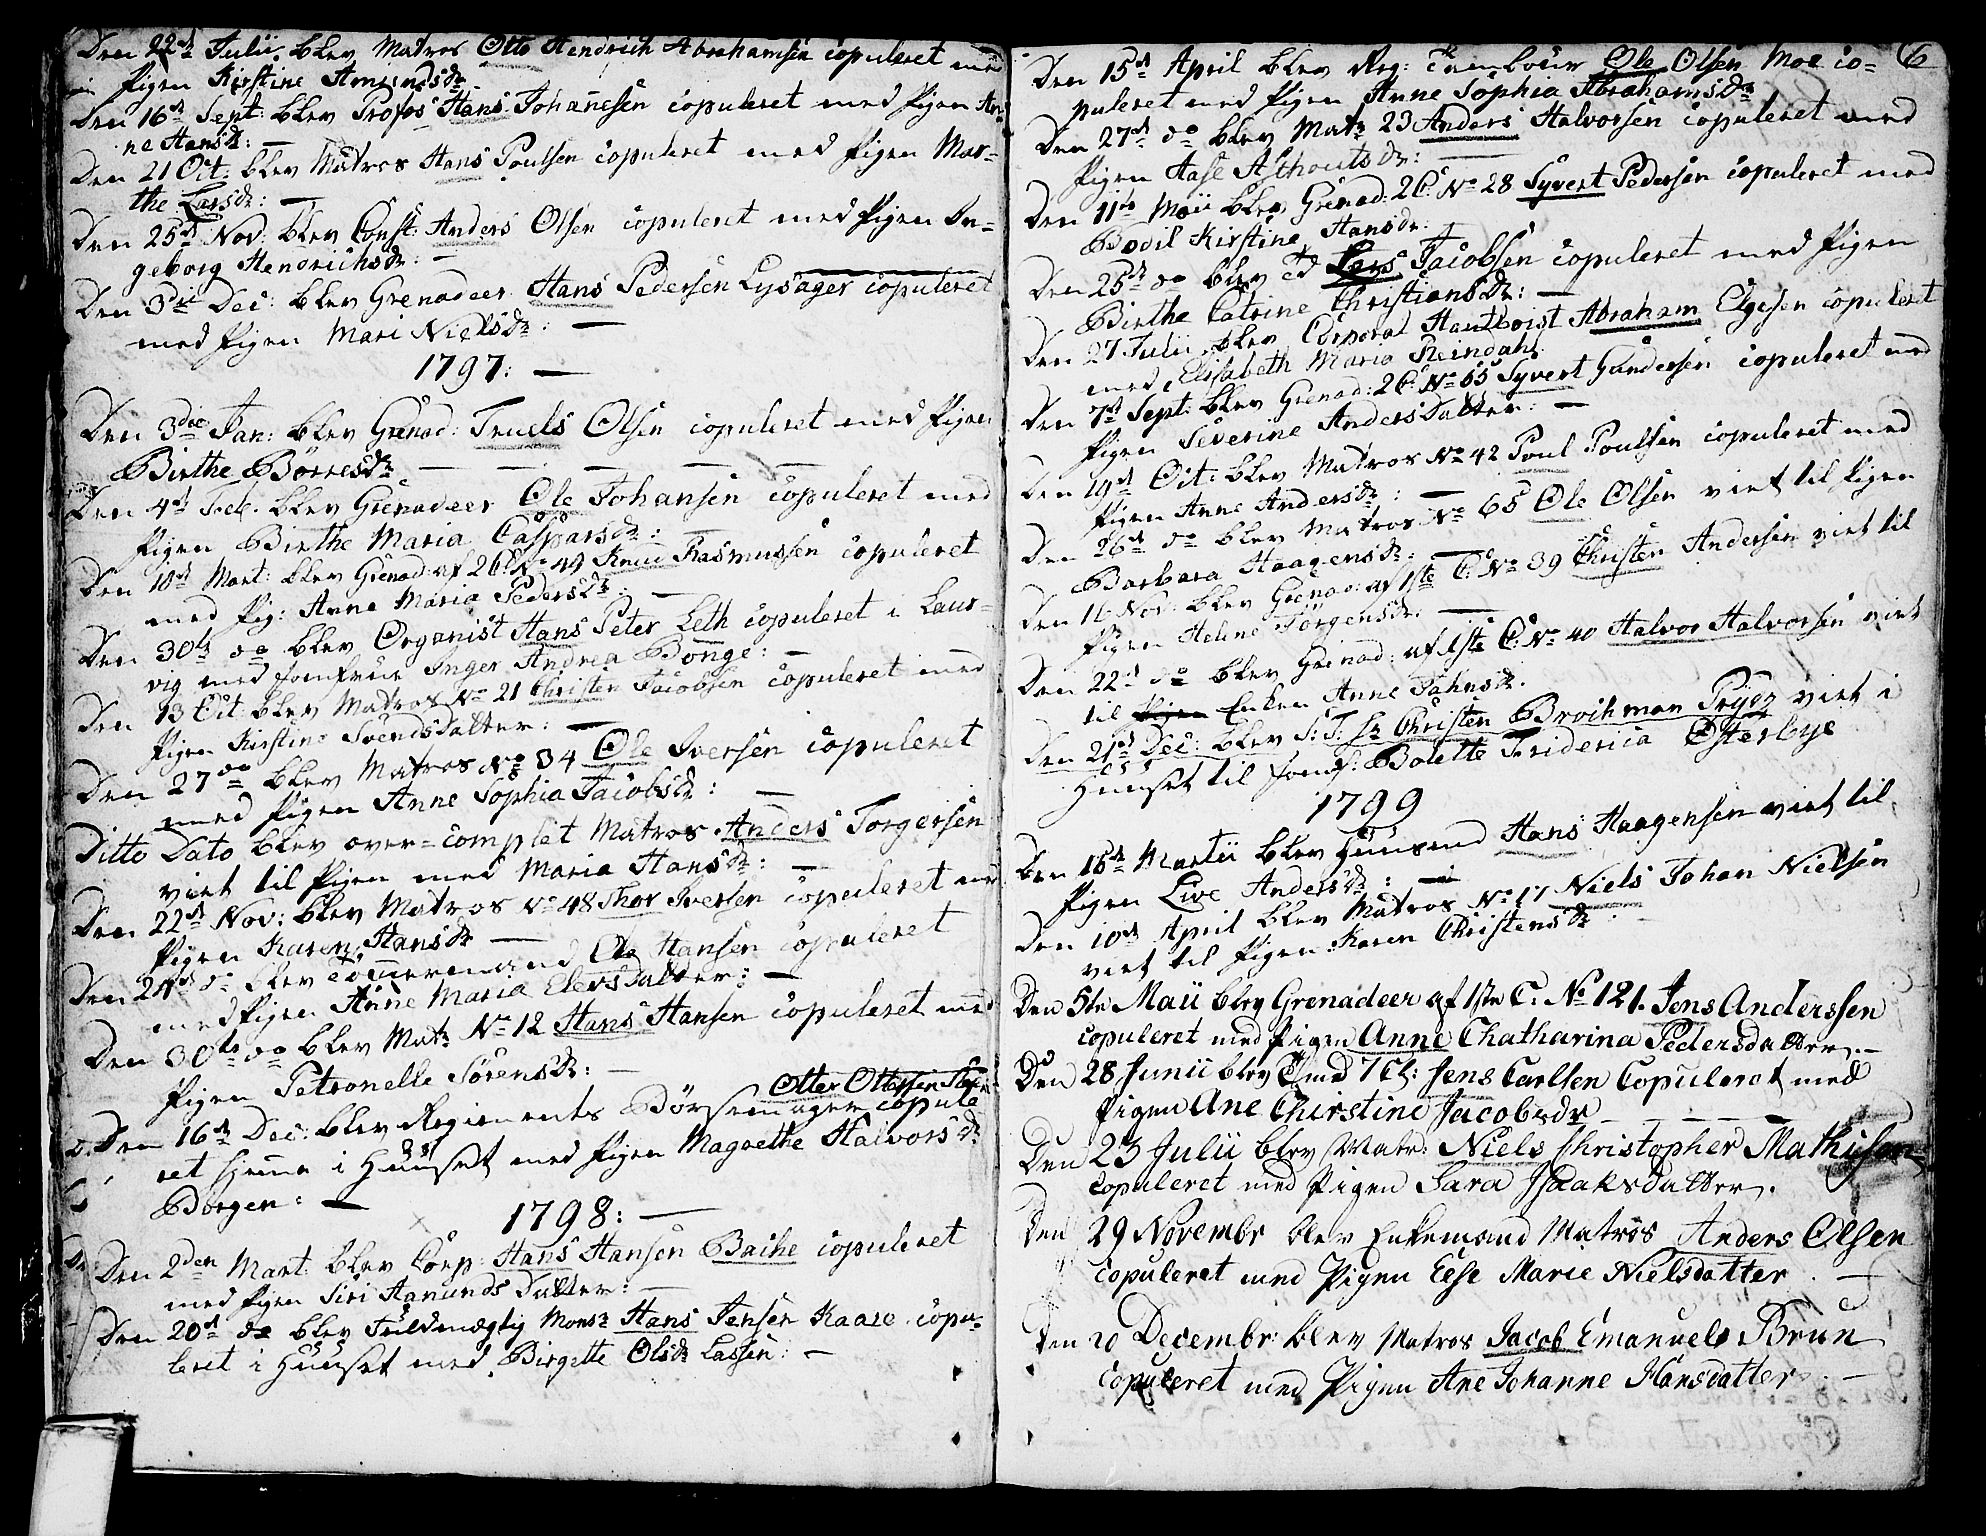 Den 22d Julii blev Matros Otto Hendrich Abrahamsen copuleret med
Pigen Kirstine Amundsdr
Den 16d Sept: blev Profos Hans Johanesen copuleret med Pigen An-
ne Hansdr: —
Den 21 Oct: blev Matros Hans Poulsen copuleret med Pigen Mar-
the Larsdr: —
Den 25d Nov: blev Const: Anders Olsen copuleret med Pigen In-
geborg Hendrichsdr: —
Den 3die Dec: blev Grenadeer Hans Pedersen Lysager copuleret
med Pigen Mari Nielsdr: —
1797: —
Den 3die Jan: blev Grenad: Truels Olsen copuleret med Pigen
Birthe Börresdr — — — — —
Den 4d Feb. blev Grenadeer Ole Johansen copuleret med
Pigen Birthe Maria Caspersdr: —
Den 10d Mart: blev Grenad: af 2 C: No 49 Knud Rasmussen copuleret
med Pig: Anne Maria Pedersdr: —
Den 30te do blev Organist Hans Peter Leth copuleret i Laur-
vig med Jomfrue Inger Andrea Bonge: —
Den 13 Oct: blev Matros No 21 Christen Jacobsen copuleret med
Pigen Kirstine Svendsdatter: —
Den 27 do blev Matros No 34 Ole Iversen copuleret
med Pigen Anne Sophia Jacobsdr: —
Ditto Dato blev over-complet Matros Anders Torgersen
viet til Pigen med Maria Hansdr: —
Den 22d Nov: blev Matros No 48 Thor Iversen copuleret med
Pigen Karen Hansdr —
Den 24d do blev Tömmermand Ole Hansen copuleret
med Pigen Anne Maria Elersdatter: —
Den 30te do blev Matr No 12 Hans Hansen copuleret med
Pigen Petronelle Sörensdr: —
Otter Ottersen
Den 16d Dec: blev Regiments Börsemager copule
ret hjeme i Huuset med Pigen Magrethe Halvorsdr
Borgen: —
1798: —
Den 2den Mart: blev Corp: Hans Hansen Bache copuleret
med Pigen Siri Aamunds Datter: —
Den 20d do blev Fuldmægtig Monsr Hans Jensen Kaare copu-
leret i Huuset med Birgette Olsdr Lassen: —
6
Den 15d April blev Reg: Tambour Ole Olsen Moe co-
puleret med Pigen Anne Sophia Abrahamsdr
Den 27d do blev Matr 23 Anders Halvorsen copuleret med
Pigen Aase Asthoutsdr: —
Den 11te Maii blev Grenad: 2 C: No 28 Syvert Pedersen copuleret med
Bodil Kirstine Hansdr:
Den 25d do blev Lars Jacobsen copuleret med Pigen
Birthe Catrine Christiansdr: —
Den 27 Julii blev Corporal Hautboist Abraham Elgesen copuleret
med Elisabeth Maria Reindahl
Den 7d Sept: blev Grenad: 2 C: No 65 Syvert Gundersen copuleret med
Pigen Severine Anders Datter: —
Den 19d Oct: blev Matros No 42 Poul Poulsen copuleret med
Pigen Anne Andersdr: —
Den 26d do blev Matros No 65 Ole Olsen viet til Pigen
Barbara Haagensdr: —
Den 11 Nov: blev Grenad: af 1ste C: No 39 Christen Andersen viet til
Pigen Helene Törgensdr. —
Den 22d do blev Grenad: af 1ste C: No 40 Halvor Halvorsen viet
til Pigen Enken Anne Jahnsdr.
Den 21d Dec: blev S: T: Hr Christen Brochman Prÿtz viet i
Huuset til Jomf: Bolette Friderica Österbye
1799
Den 15d Martii blev Huusmand Hans Haagensen viet til
Pigen Live Andersdr: —
Den 10d April blev Matros No 17 Niels Johan Nielsen
viet til Pigen Karen Christensdr
Den 5te Maii blev Grenadeer af 1ste C: No 121. Jens Anderssen
copuleret med Pigen Anne Chatharina Pedersdatter. —
Den 28 Junii blev Jens Carlsen Copuleret med
Pigen Ane Chirstine Jacobsdr — — — —
Den 23 Julii blev Matr: Niels Christopher Mathisen
copuleret med Pigen Sara Isaaksdatter.
Den 29 Novembr blev Enkemand Matros Anders Olsen
copuleret med Pigen Else Marie Nielsdatter. —
Den 20 Decembr: blev Matros Jacob Emanuels Brun
copuleret med Pigen Ane Johanne Hansdatter. —